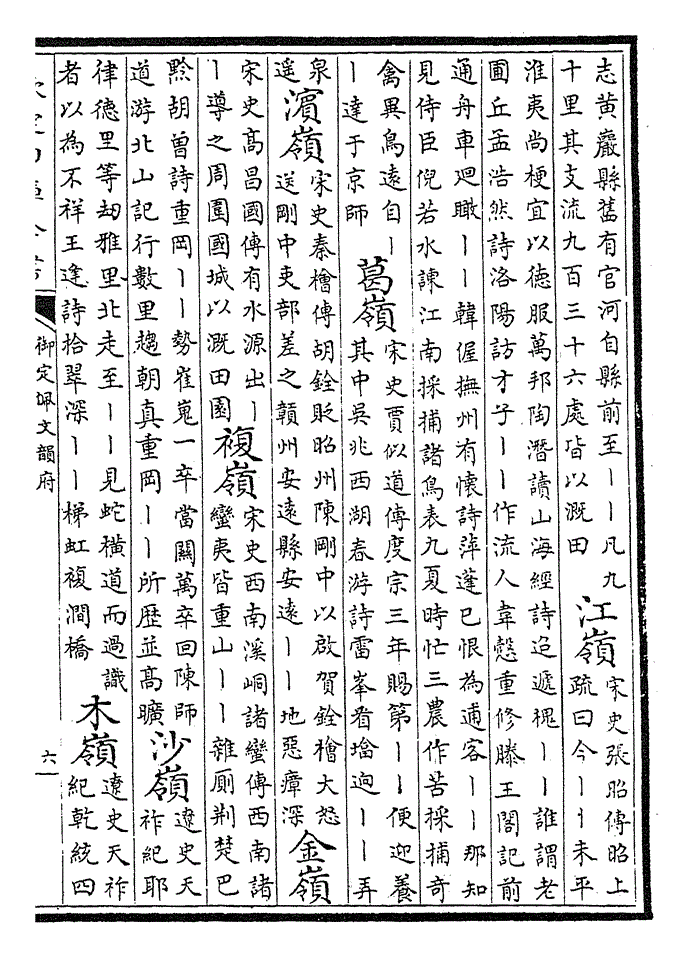 志黃巖縣舊有官河自縣前至丨丨凡九
十里其支流九百三十六處皆以溉田
江嶺
宋史張昭傳昭上
疏曰今丨丨未平
淮夷尚梗宜以德服萬邦陶潛讀山海經詩迢遞槐丨丨誰謂老
圃丘孟浩然詩洛陽訪才子丨丨作流人韋慤重修滕王閣記前
通舟車迴瞰丨丨韓偓撫州有懷詩萍蓬已恨為逋客丨丨那知
見侍臣倪若水諫江南採捕諸鳥表九夏時忙三農作苦採捕奇
禽異鳥遠自丨
丨達于京師
葛嶺
宋史賈似道傳度宗三年賜第丨丨便迎養
其中吳兆西湖春游詩雷峯看墖迥丨丨弄
泉
遥
濵嶺
宋史秦檜傳胡銓貶昭州陳剛中以啟賀銓檜大怒
送剛中吏部差之贛州安遠縣安遠丨丨地惡瘴深
金嶺
宋史高昌國傳有水源出丨
丨導之周圍國城以溉田園
複嶺
宋史西南溪峒諸蠻傳西南諸
蠻夷皆重山丨丨雜厠荆楚巴
黔胡曾詩重岡丨丨勢崔嵬一卒當關萬卒回陳師
道游北山記行數里趨朝真重岡丨丨所歴並高曠
沙嶺
遼史天
祚紀耶
律德里等劫雅里北走至丨丨見蛇横道而過識
者以為不祥王逢詩拾翠深丨丨梯虹複澗橋
木嶺
遼史天祚
紀乾統四
御定佩文韻府
六